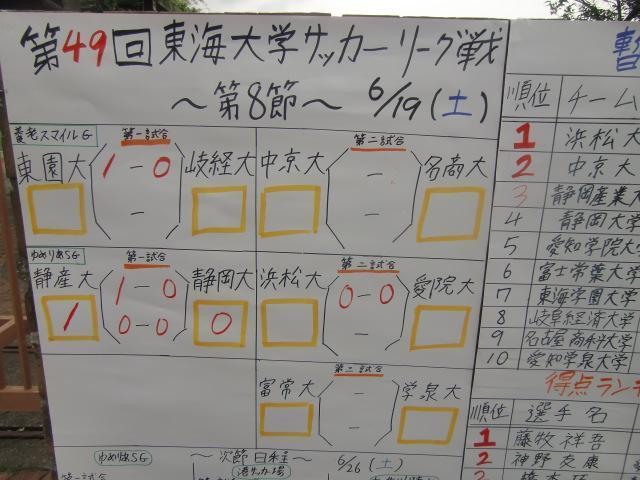 第49回東海大学サッカーリーグ戦
～第8節～ 6/19(土)
養老スマイルG
第一試合
東園大
1-0
-
岐経大
第二試合
中京大
-
-
名商大
ゆめりあG
第一試合
静産大
1
1-0
0-0
静岡大
0
第二試合
浜松大
0-0
-
愛院大
第三試合
富常大
-
-
学泉大
～次節日程～ 6/26(土)
ゆめりあSG
港サッカー場
第一試合
順位 チーム
1 浜松大
2 中京大
3 静岡産業大
4 静岡大学
5 愛知学院大
6 富士常葉大
7 東海学園大学
8 岐阜経済大学
9 名古屋商科大学
10 愛知学泉大学
得点ラン
順位 選手名
1 藤牧祥吾
2 神野友康